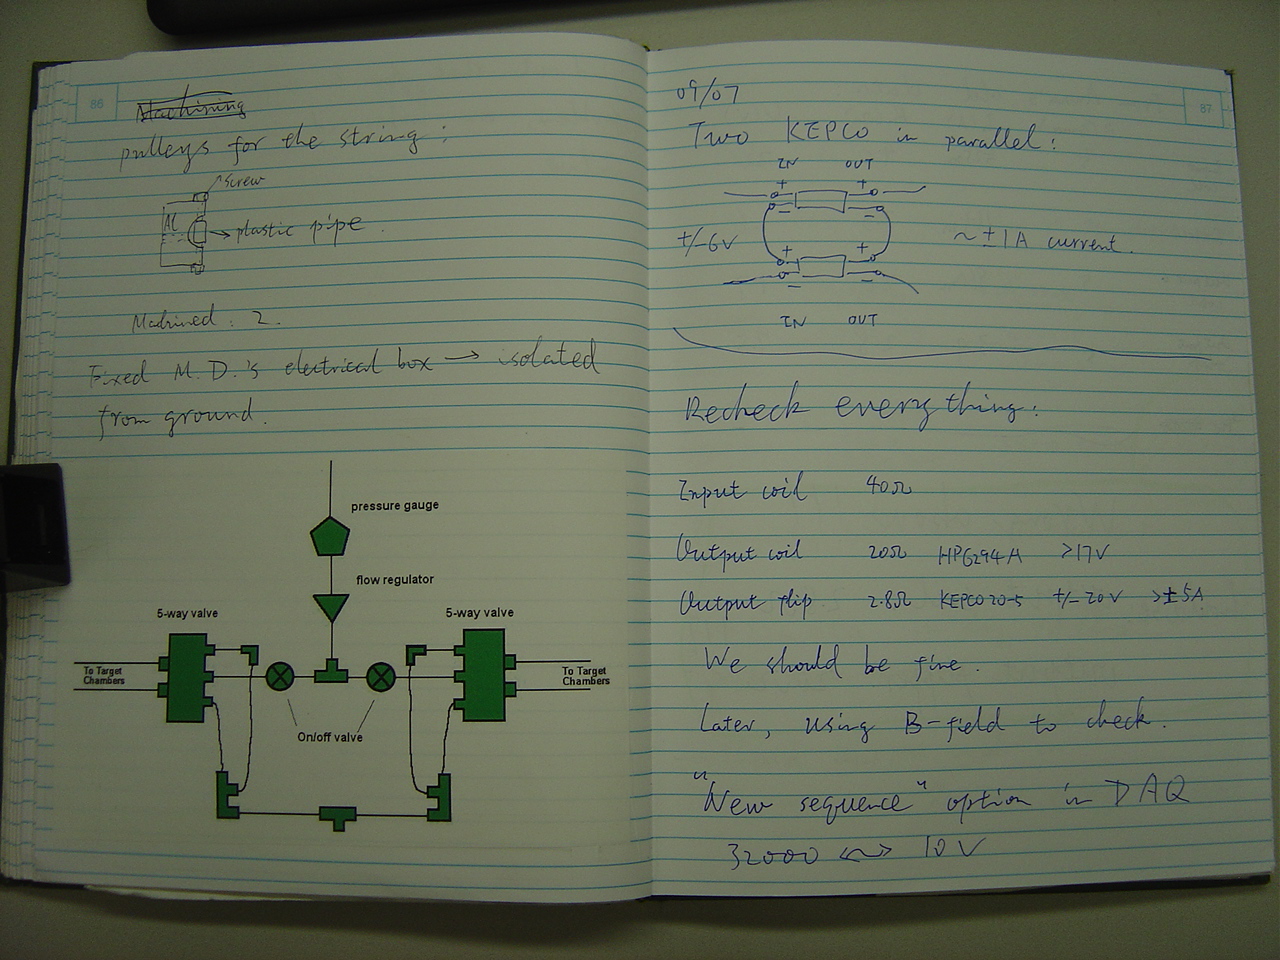 86
Machining
pulleys for the string:
screw
Al
plastic pipe.
Machined: 2.
Fixed M. D.'s electrical box → isolated
from ground.
pressure gauge
flow regulator
5-way valve
5-way valve
To Target
Chambers
To Target
Chambers
On/off valve
87
09/07
Two KEPCO in parallel:
IN OUT
+ +
- -
+/-6V
~ ±1A current.
+ +
- -
IN OUT
Recheck everything:
Input coil 40Ω
Output coil 20Ω HP6294A >17V
Output flip 2.8Ω KEPCO 20-5 +/- 20V >±5A
We should be fine.
Later, using B-field to check.
"New sequence" option in DAQ
32000 <-> 10V